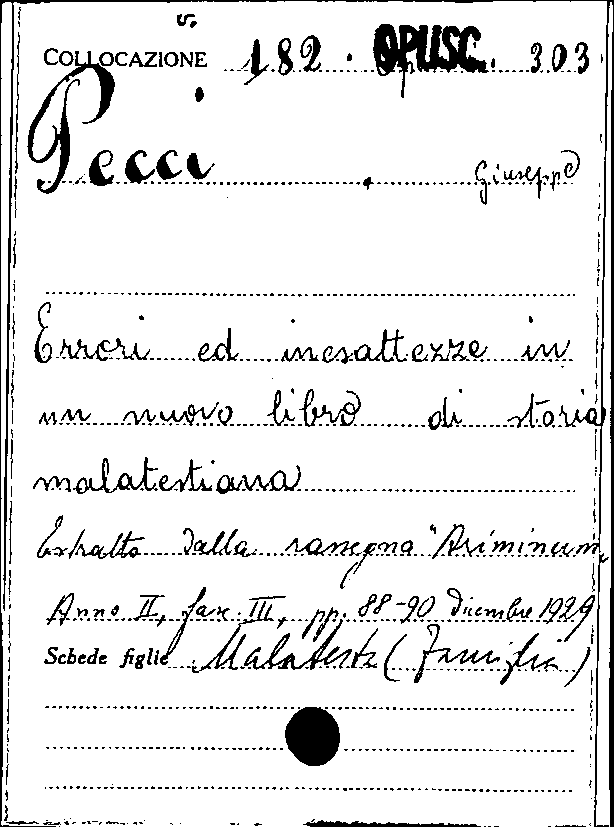 s.
COLLOCAZIONE 182. OPUSC. 303
Pecci . Giuseppe
Errori ed inesattezze in
un nuovo libro di storia
malatestiana
Estratto dalla rassegna "Ariminum,
Anno II, fasc. III, pp. 88-90 dicembre 1929
Schede figlie Malatesta (Famiglia)